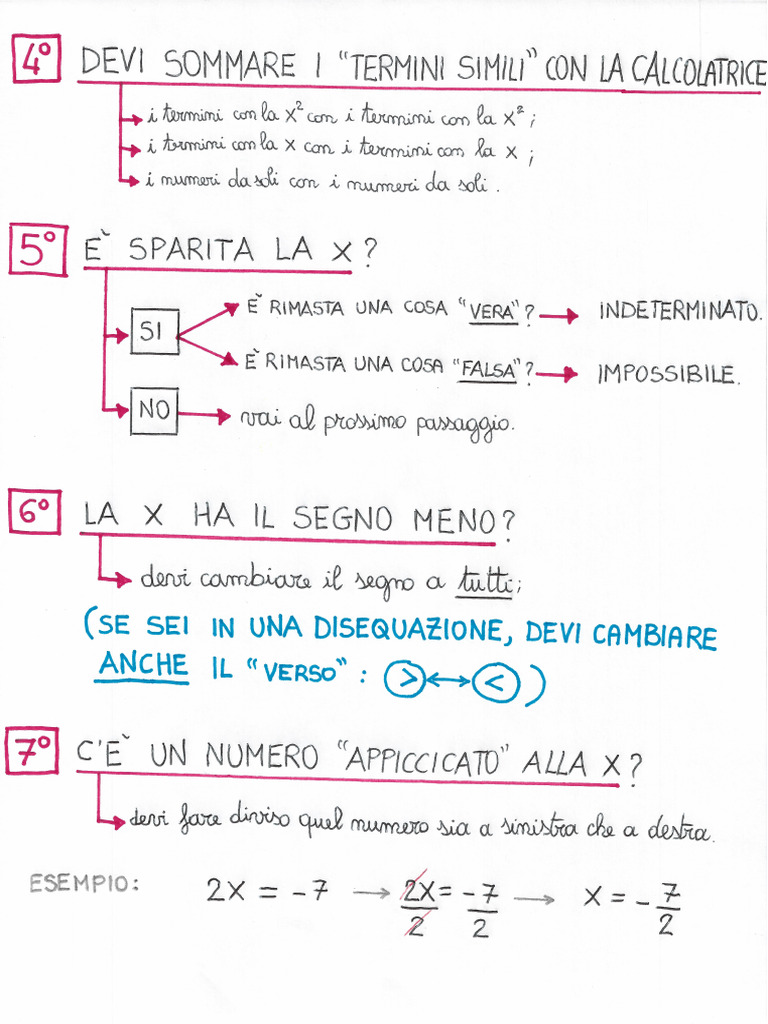 4° DEVI SOMMARE I "TERMINI SIMILI" CON LA CALCOLATRICE
i termini con la x² con i termini con la x²;
i termini con la x con i termini con la x;
i numeri da soli con i numeri da soli.
5° È SPARITA LA X?
SI
È RIMASTA UNA COSA "VERA"? → INDETERMINATO.
È RIMASTA UNA COSA "FALSA"? → IMPOSSIBILE.
NO → vai al prossimo passaggio.
6° LA X HA IL SEGNO MENO?
devi cambiare il segno a tutti;
(SE SEI IN UNA DISEQUAZIONE, DEVI CAMBIARE
ANCHE IL "VERSO": > ↔ <)
7° C'È UN NUMERO "APPICCICATO" ALLA X?
devi fare diviso quel numero sia a sinistra che a destra.
ESEMPIO: 2X = -7 → 2X/2 = -7/2 → X = -7/2